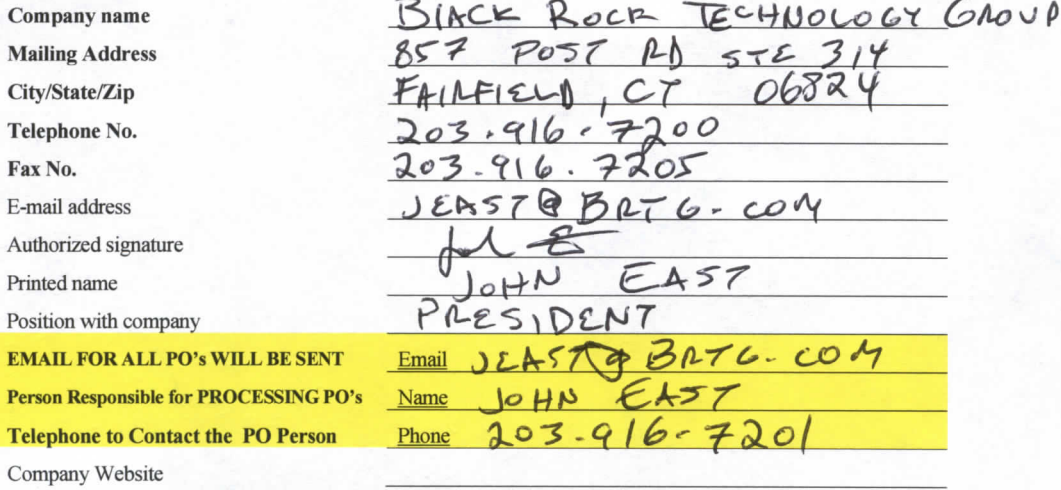 Company name BLACK ROCK TECHNOLOGY GROUP
Mailing Address 857 POST RD STE 314
City/State/Zip FAIRFIELD, CT 06824
Telephone No. 203.916.7200
Fax No. 203.916.7205
E-mail address JEAST@BRTG.COM
Authorized signature
Printed name JOHN EAST
Position with company PRESIDENT
EMAIL FOR ALL PO's WILL BE SENT Email JEAST@BRTG.COM
Person Responsible for PROCESSING PO's Name JOHN EAST
Telephone to Contact the PO Person Phone 203.916.7201
Company Website